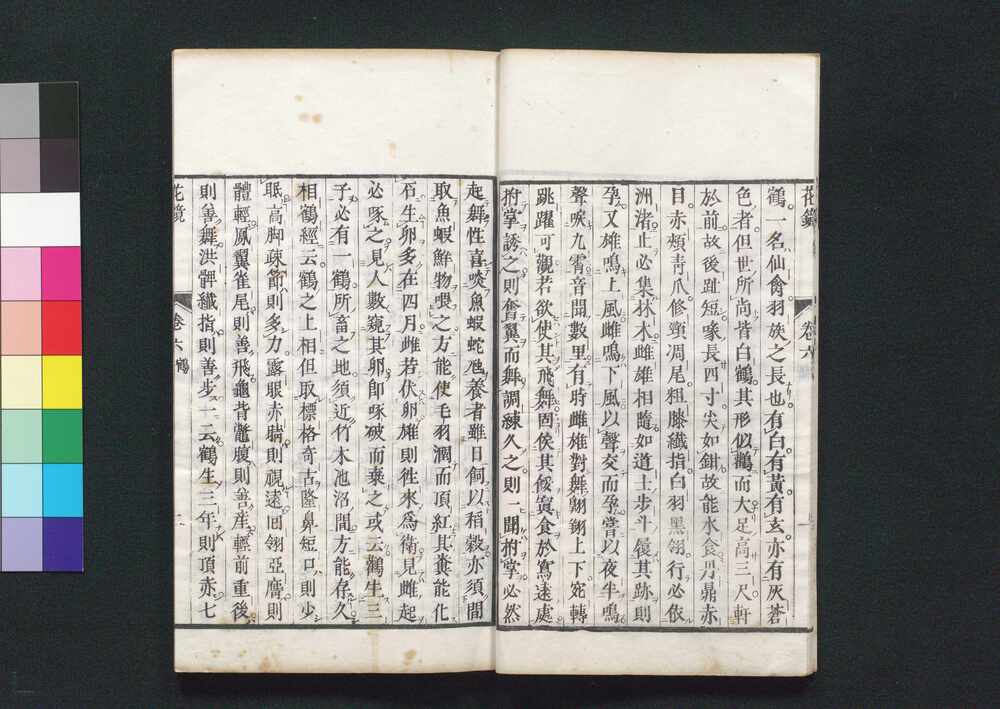 花鏡
卷六
鶴一名仙禽羽族之長也有白有黃有玄亦有灰蒼
色者但世所尚皆白鶴其形似鸛而大足高三尺軒
於前故後趾短喙長四寸尖如鉗故能水食丹鼎赤
目赤頰青爪修頸凋尾粗膝纖指白羽黑翎行必依
洲渚止必集林木雌雄相隨如道士步斗履其跡則
孕又雄鳴上風雌鳴下風以聲交而孕嘗以夜半鳴
聲唳九霄音聞數里有時雌雄對舞翱翔上下宛轉
跳躍可觀若欲使其飛舞固俟其餒寘食於窩遠處
拊掌誘之則奮翼而舞調練久之則一聞拊掌必然
起舞性喜啖魚蝦蛇虺養者雖日飼以稻穀亦須間
取魚蝦鮮物喂之方能使毛羽潤而頂紅其糞能化
石生卵多在四月雌若伏卵雄則徃來爲衛見雌起
必啄之見人數窺其卵卽啄破而棄之或云鶴生三
子必有一鶴所畜之地須近竹木池沼間方能存久
相鶴經云鶴之上相但取標格奇古隆鼻短口則少
眠高脚疎節則多力露眼赤睛則視遠回翎亞膺則
體輕鳳翼雀尾則善飛龜背鼈腹則善產輕前重後
則善舞洪髀纖指則善步一云鶴生三年則頂赤七
花鏡
卷六 鶴